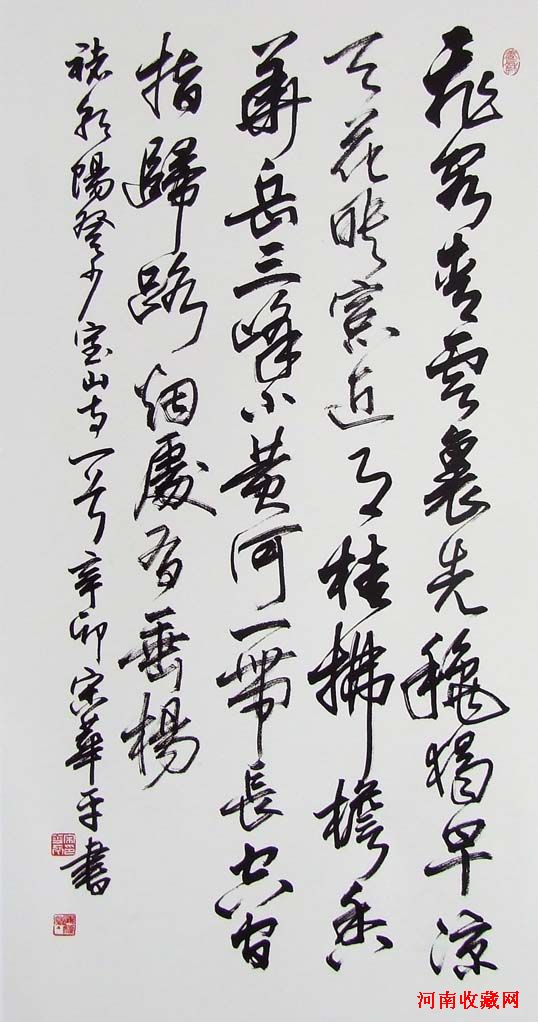 飛閣青雲裏先穐獨早凉
天花映窗近月桂拂檐香
華岳三峰小黄河一帶長空間
指歸路烟處有垂楊
褚朝陽登少室山寺一首辛卯宋華平書
河南收藏网